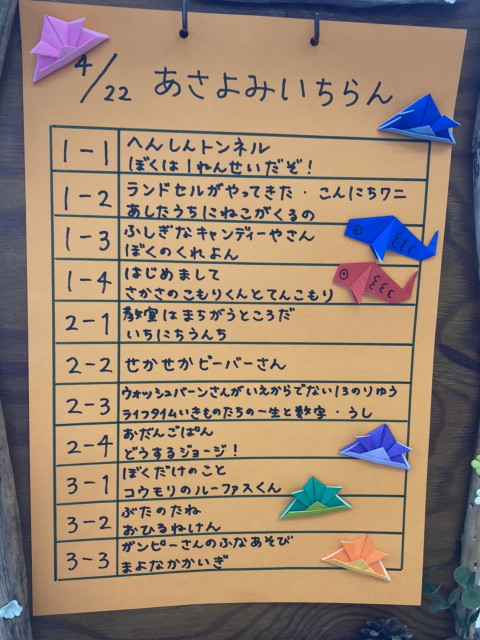 4/22 あさよみいちらん
1-1 へんしんトンネル
ぼくは1ねんせいだぞ!
1-2 ランドセルがやってきた・こんにちワニ
あしたうちにねこがくるの
1-3 ふしぎなキャンディーやさん
ぼくのくれよん
1-4 はじめまして
さかさのこもりくんとてんこもり
2-1 教室はまちがうところだ
いちにちうんち
2-2 せかせかビーバーさん
2-3 ウォッシュバーンさんがいえからでない13のりゆう
ライフタイムいきものたちの一生と数字・うし
2-4 おだんごぱん
どうするジョージ!
3-1 ぼくだけのこと
コウモリのルーファスくん
3-2 ぶたのたね
おひるねけん
3-3 ガンピーさんのふなあそび
まよなかかいぎ